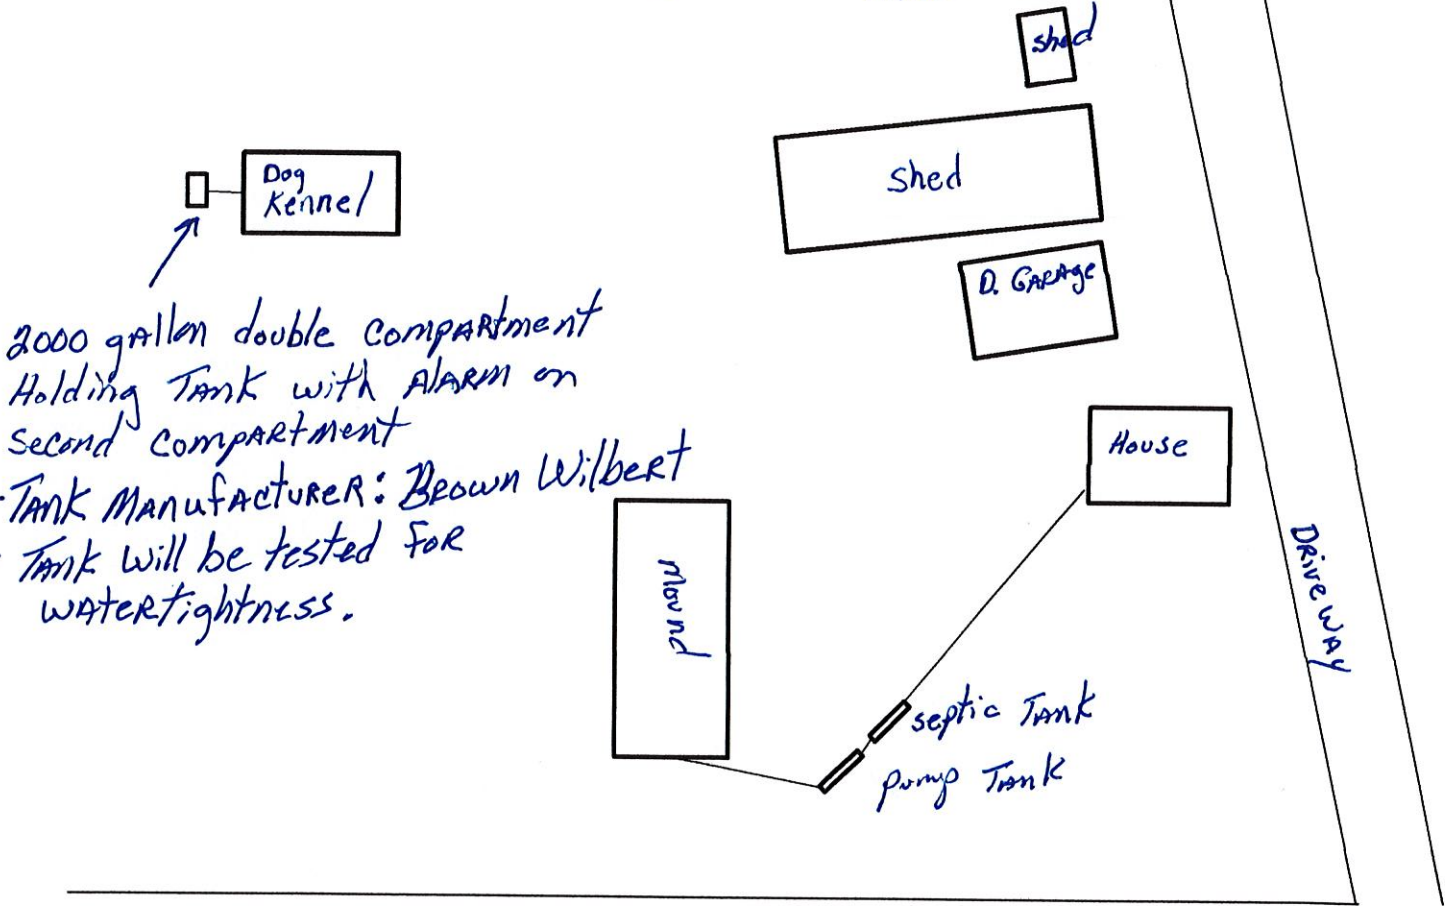 shed
Shed
Dog
Kennel
D. GARAge
2000 gallon double compARtment
Holding TANK with ALARM on
second compARtment
House
· TANK MANufActuReR: BROWN Wilbert
· TANK will be tested foR
WAteRtightness.
Mound
DRiveWAy
septic TANK
pump TANK